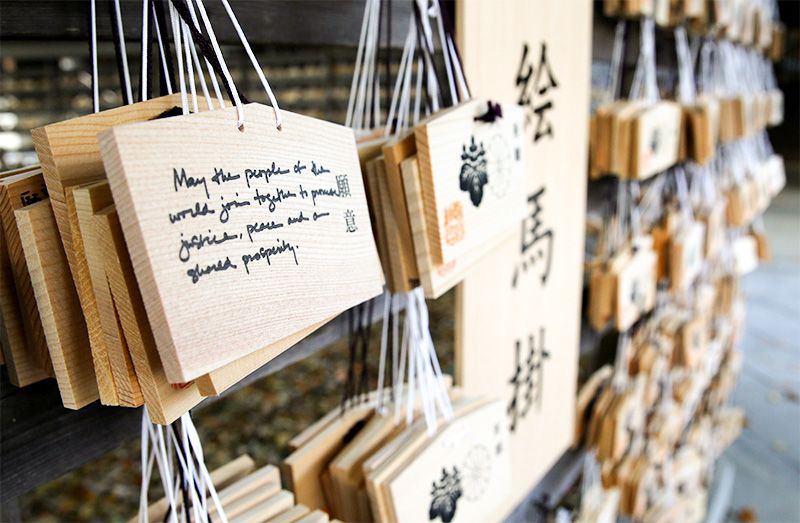 May the people of the
world join together to promote
justice, peace and a
shared prosperity.
願意
絵馬掛